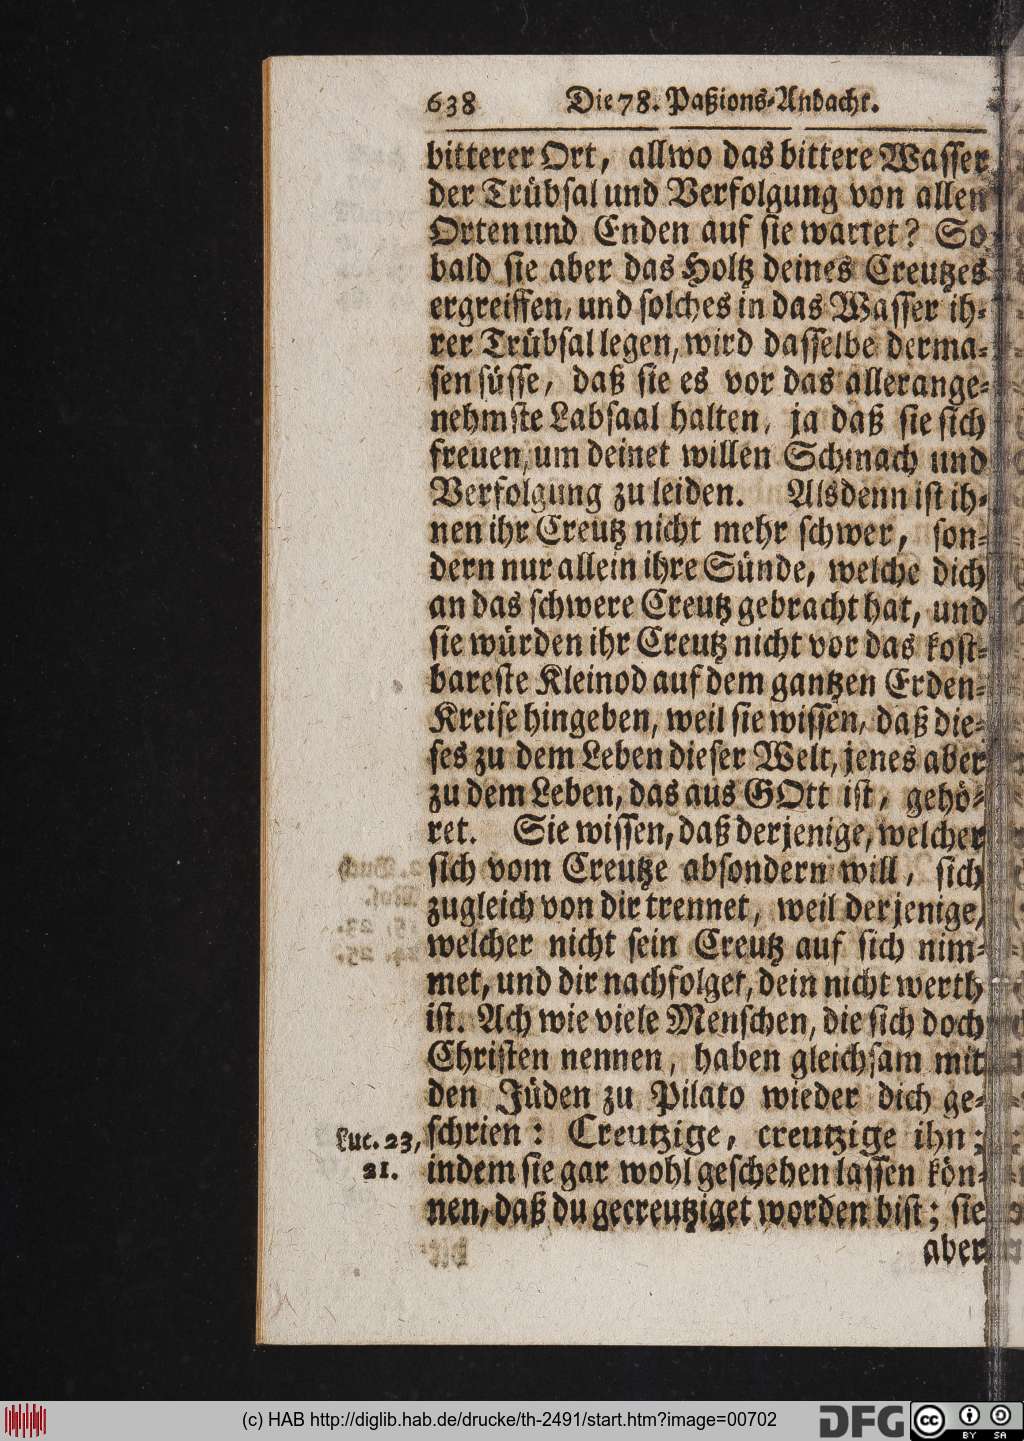 638 Die 78. Paßions-Andacht.
bitterer Ort, allwo das bittere Wasser
der Trübsal und Verfolgung von allen
Orten und Enden auf sie wartet? So
bald sie aber das Holtz deines Creutzes
ergreiffen, und solches in das Wasser ih-
rer Trübsal legen, wird dasselbe derma-
sen süsse, daß sie es vor das allerange-
nehmste Labsaal halten, ja daß sie sich
freuen, um deinet willen Schmach und
Verfolgung zu leiden. Alsdenn ist ih-
nen ihr Creutz nicht mehr schwer, son-
dern nur allein ihre Sünde, welche dich
an das schwere Creutz gebracht hat, und
sie würden ihr Creutz nicht vor das kost-
bareste Kleinod auf dem gantzen Erden-
Kreise hingeben, weil sie wissen, daß die-
ses zu dem Leben dieser Welt, jenes aber
zu dem Leben, das aus GOtt ist, gehö-
ret. Sie wissen, daß derjenige, welcher
sich vom Creutze absondern will, sich
zugleich von dir trennet, weil derjenige,
welcher nicht sein Creutz auf sich nim-
met, und dir nachfolget, dein nicht werth
ist. Ach wie viele Menschen, die sich doch
Christen nennen, haben gleichsam mit
den Jüden zu Pilato wieder dich ge-
Luc. 23, schrien: Creutzige, creutzige ihn;
21. indem sie gar wohl geschehen lassen kön-
nen, daß du gecreutziget worden bist; sie
aber
(c) HAB http://diglib.hab.de/drucke/th-2491/start.htm?image=00702
DFG
cc BY SA